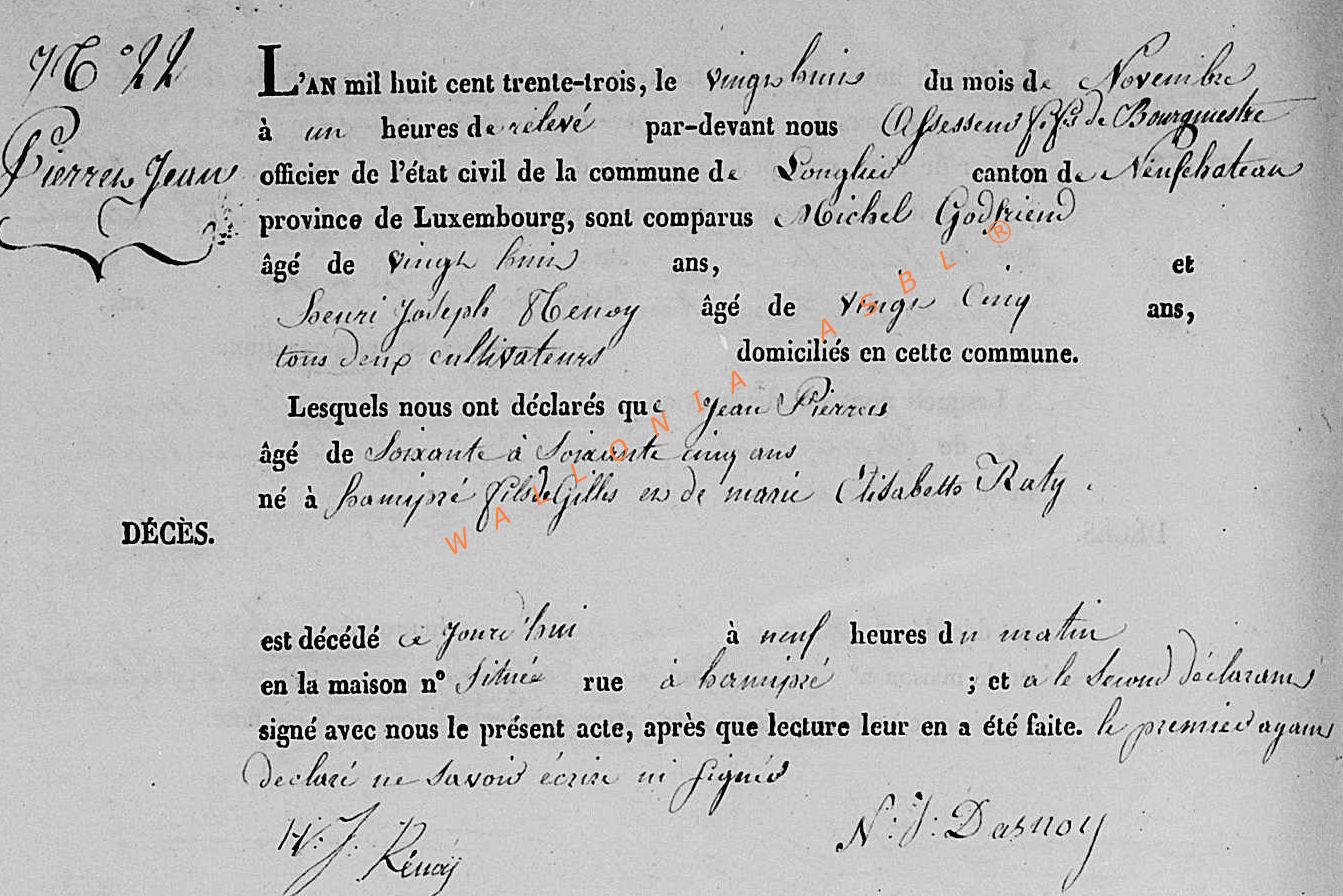 N° 22
Pierret Jean
L'AN mil huit cent trente-trois, le vingt huit du mois de Novembre
à un heures de relevé par-devant nous Assesseur f.f. de Bourgmestre
officier de l'état civil de la commune de Longlier canton de Neufchateau
province de Luxembourg, sont comparus Michel Godfriend
âgé de vingt huit ans, et
henri Joseph Renoy âgé de vingt Cinq ans,
tous deux cultivateurs domiciliés en cette commune.
Lesquels nous ont déclarés que Jean Pierret
âgé de Soixante à Soixante cinq ans
né à hamipré fils de Gilles et de marie Elisabette Raty
DÉCÈS.
est décédé ce Jourd'hui à neuf heures du matin
en la maison n° Située rue à hamipré ; et a le Second déclarant
signé avec nous le présent acte, après que lecture leur en a été faite. le premier ayant
declaré ne savoir écrire ni signer
H. J. Rénoy
N. J. Dasnoy
WALLONIA ASBL ®